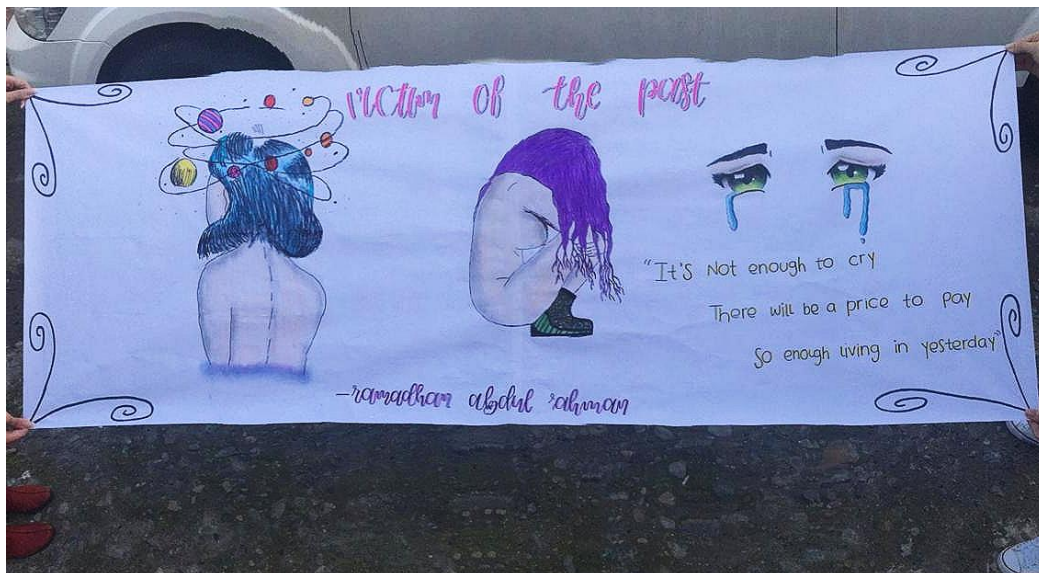 victim of the past
"It's Not enough to cry
There will be a price to pay
So enough living in yesterday"
-ramadhan abdul rahman